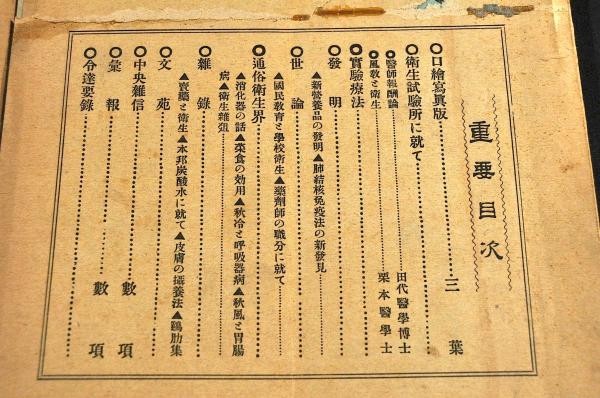 重要目次
○口繪寫眞版……三葉
○衛生試驗所に就て……
○醫師報酬論……田代醫學博士
○風敎と衛生……栗本醫學士
○實驗療法……
○發明……
▲新營養品の發明▲肺結核免疫法の新發見……
○世論……
▲國民敎育と學校衛生▲藥劑師の職分に就て……
○通俗衛生界……
▲消化器の話▲菜食の効用▲秋冷と呼吸器病▲秋風と胃腸
病▲衛生雜俎……
○雜錄……
▲賣藥と衛生▲本邦炭酸水に就て▲皮膚の攝養法▲鷄肋集
○文苑……
○中央雜信……數項
○彙報……數項
○令達要錄……